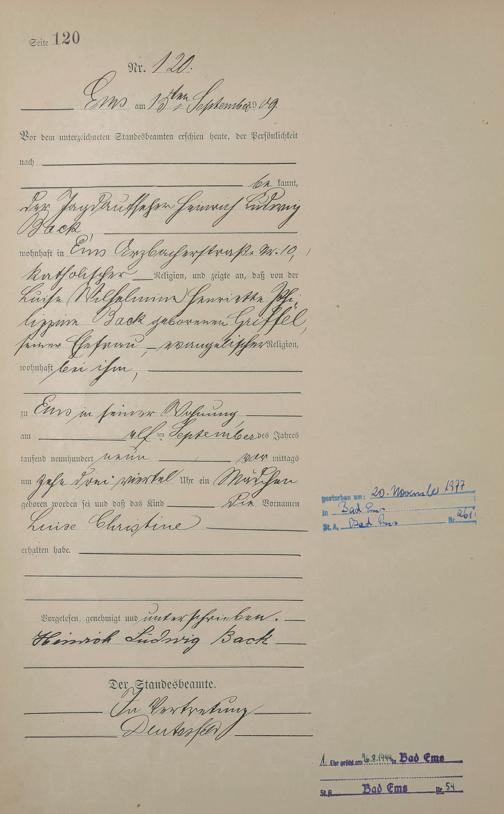 Seite 120
Nr. 120.
Ems am 13ten September 1909.
Vor dem unterzeichneten Standesbeamten erschien heute, der Persönlichkeit
nach
be kannt,
der Jagdaufseher Heinrich Ludwig
Back,
wohnhaft in Ems Arzbacherstraße Nr. 10,
katholischer Religion, und zeigte an, daß von der
Luise Wilhelmine Henriette Phi-
lippine Back geborenen Griffel,
seiner Ehefrau, evangelischer Religion,
wohnhaft bei ihm,
zu Ems in seiner Wohnung
am elf ten September des Jahres
tausend neunhundert neun vor mittags
um zehn drei viertel Uhr ein Mädchen
geboren worden sei und daß das Kind die Vornamen
Luise Christine
erhalten habe.
Vorgelesen, genehmigt und unterschrieben.
Heinrich Ludwig Back
Der Standesbeamte.
In Vertretung
gestorben am: 20. November 1977
in Bad Ems
St. A. Bad Ems Nr. 261
1. Ehe geschl. am in Bad Ems
St.A. Bad Ems Nr. 54